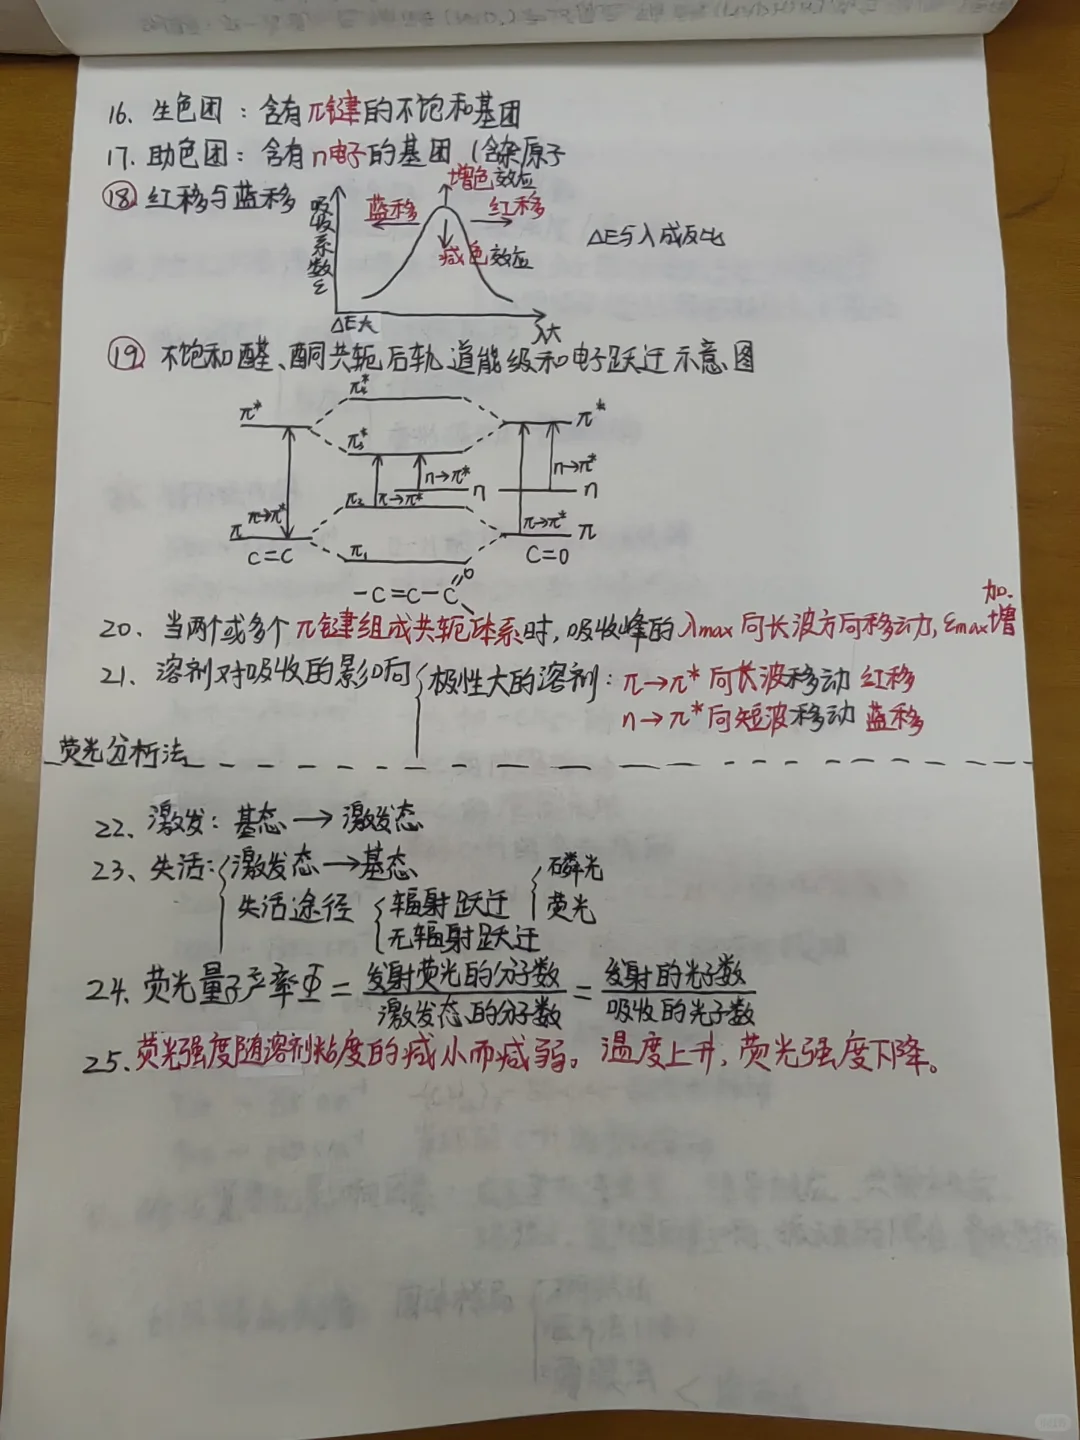 16、生色团：含有π键的不饱和基团
17、助色团：含有n电子的基团（含杂原子
⑱ 红移与蓝移
增色效应
蓝移
红移
减色效应
吸收系数ε
ΔE与λ成反比
ΔE大
λ大
⑲ 不饱和醛、酮共轭后轨道能级和电子跃迁示意图
π₄*
π*
π*
π₃*
n→π*
n→π*
n
n
π→π*
π₂
π→π*
π→π*
π
π
C=C
π₁
C=O
-C=C-C=O
20、当两个或多个π键组成共轭体系时，吸收峰的λmax向长波方向移动，εmax增加.
21、溶剂对吸收的影响{极性大的溶剂：π→π*向长波移动 红移
n→π*向短波移动 蓝移
荧光分析法
22、激发：基态→激发态
23、失活：{激发态→基态
失活途径{辐射跃迁{磷光
荧光
无辐射跃迁
24、荧光量子产率Φ=发射荧光的分子数/激发态的分子数=发射的光子数/吸收的光子数
25、荧光强度随溶剂粘度的减小而减弱。温度上升，荧光强度下降。